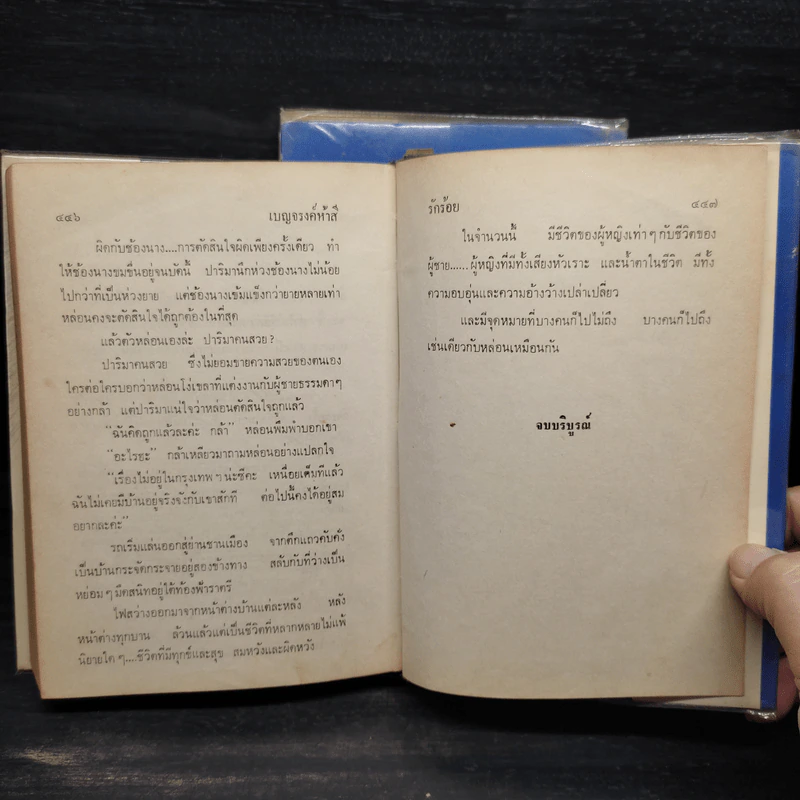 ๔๔๖ เบญจรงค์ห้าสี
ผิดกับช้องนาง....การตัดสินใจผิดเพียงครั้งเดียว ทำ
ให้ช้องนางขมขื่นอยู่จนบัดนี้ ปาริมานึกห่วงช้องนางไม่น้อย
ไปกว่าที่เป็นห่วงยาย แต่ช้องนางเข้มแข็งกว่ายายหลายเท่า
หล่อนคงจะตัดสินใจได้ถูกต้องในที่สุด
แล้วตัวหล่อนเองล่ะ ปาริมาคนสวย?
ปาริมาคนสวย ซึ่งไม่ยอมขายความสวยของตนเอง
ใครต่อใครบอกว่าหล่อนโง่เขลาที่แต่งงานกับผู้ชายธรรมดาๆ
อย่างกล้า แต่ปาริมาแน่ใจว่าหล่อนตัดสินใจถูกแล้ว
“ฉันคิดถูกแล้วละค่ะ กล้า” หล่อนพึมพำบอกเขา
“อะไรฮะ” กล้าเหลียวมาถามหล่อนอย่างแปลกใจ
“เรื่องไม่อยู่ในกรุงเทพฯ น่ะซีคะ เหนื่อยเต็มทีแล้ว
ฉันไม่เคยมีบ้านอยู่จริงจังกับเขาสักที ต่อไปนี้คงได้อยู่สม
อยากละค่ะ”
รถเริ่มแล่นออกสู่ย่านชานเมือง จากตึกแถวคับคั่ง
เป็นบ้านกระจัดกระจายอยู่สองข้างทาง สลับกับที่ว่างเป็น
หย่อมๆ มืดสนิทอยู่ใต้ท้องฟ้าราตรี
ไฟสว่างออกมาจากหน้าต่างบ้านแต่ละหลัง หลัง
หน้าต่างทุกบาน ล้วนแล้วแต่เป็นชีวิตที่หลากหลายไม่แพ้
นิยายใดๆ....ชีวิตที่มีทุกข์และสุข สมหวังและผิดหวัง
รักร้อย ๔๔๗
ในจำนวนนี้ มีชีวิตของผู้หญิงเท่าๆ กับชีวิตของ
ผู้ชาย......ผู้หญิงที่มีทั้งเสียงหัวเราะ และน้ำตาในชีวิต มีทั้ง
ความอบอุ่นและความอ้างว้างเปล่าเปลี่ยว
และมีจุดหมายที่บางคนก็ไปไม่ถึง บางคนก็ไปถึง
เช่นเดียวกับหล่อนเหมือนกัน
จบบริบูรณ์